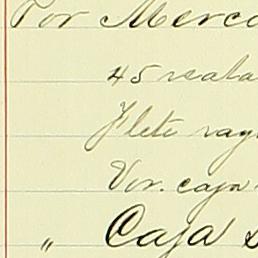 Por Merca
45 reata
Flete vag
Vor. caja
" Caja